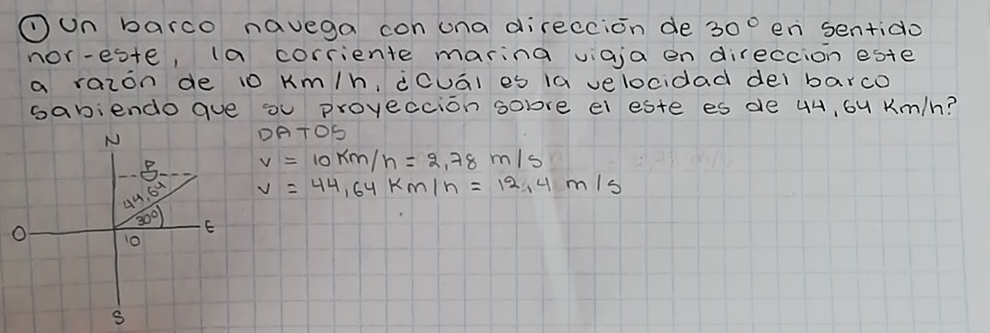 ① Un barco navega con una dirección de 30° en sentido
nor-este, la corriente marina viaja en dirección este
a razón de 10 Km/h, ¿cuál es la velocidad del barco
sabiendo que su proyección sobre el este es de 44,64 Km/h?
DATOS
N
v = 10 Km/h = 2,78 m/s
v = 44,64 Km/h = 12,4 m/s
44,64
30°
O
E
10
S